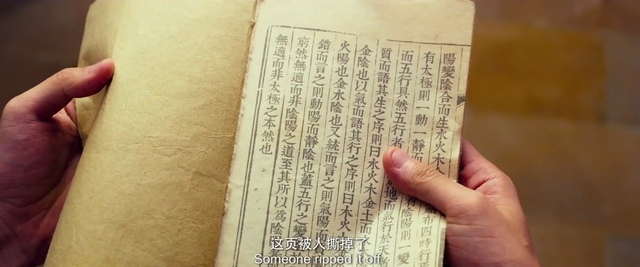 陽變陰合而生水火木
有太極則一動一靜而
而五行具然五行者
質而語其生之序則曰水火木金土而
金陰也以氣而語其行之序則曰木火
火陽也金水陰也又統而言之則氣陽而
錯而言之則動陽而靜陰也蓋五行之變
窮然無適而非陰陽之道至其所以為陰
無適而非太極之本然也
这页被人撕掉了
Someone ripped it off.